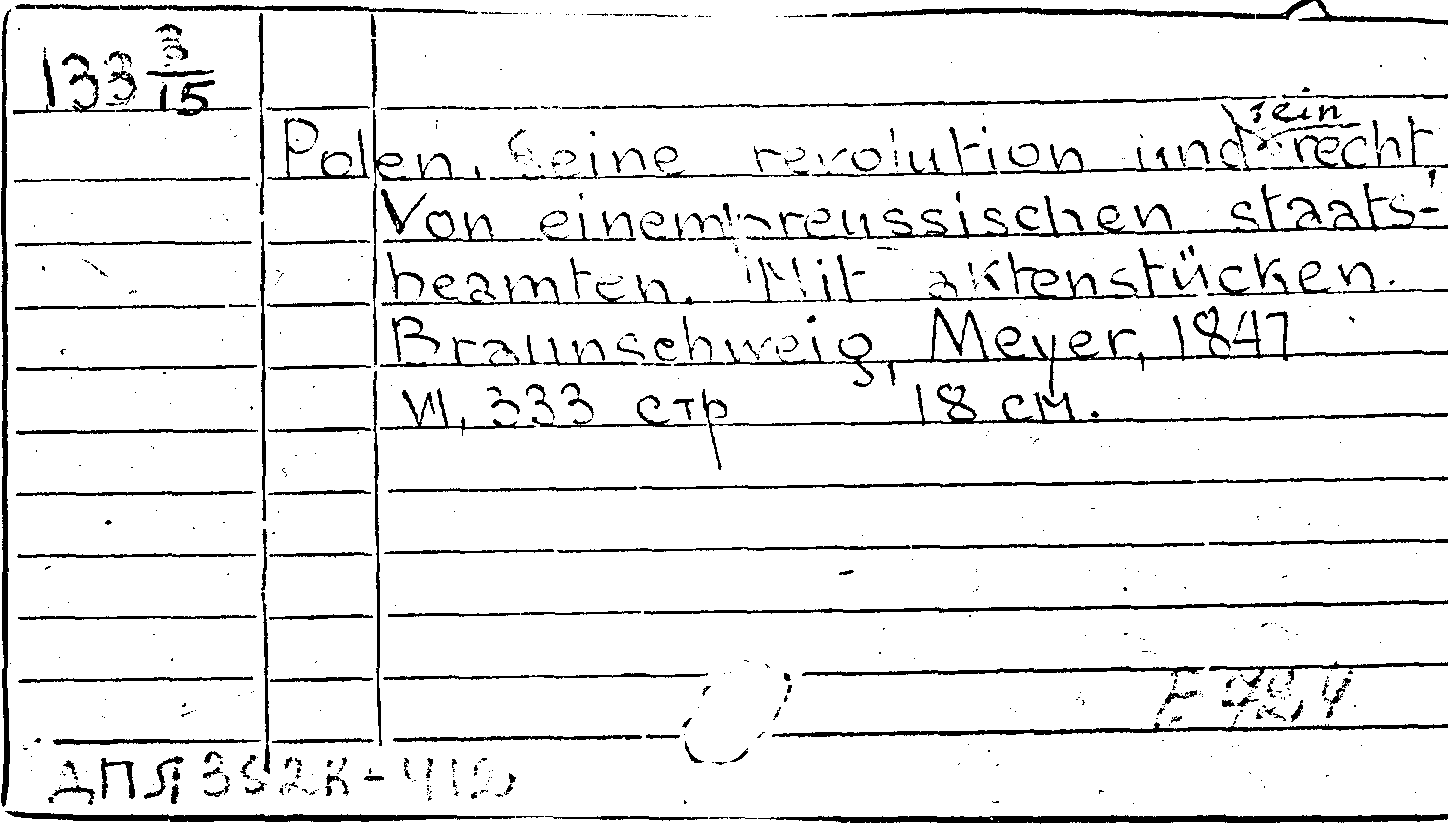 133 3/15
Polen. Seine revolution und sein recht
Von einem preussischen staats-
beamten. Mit aktenstücken.
Braunschweig, Meyer, 1847
VI, 333 стр 18 см.